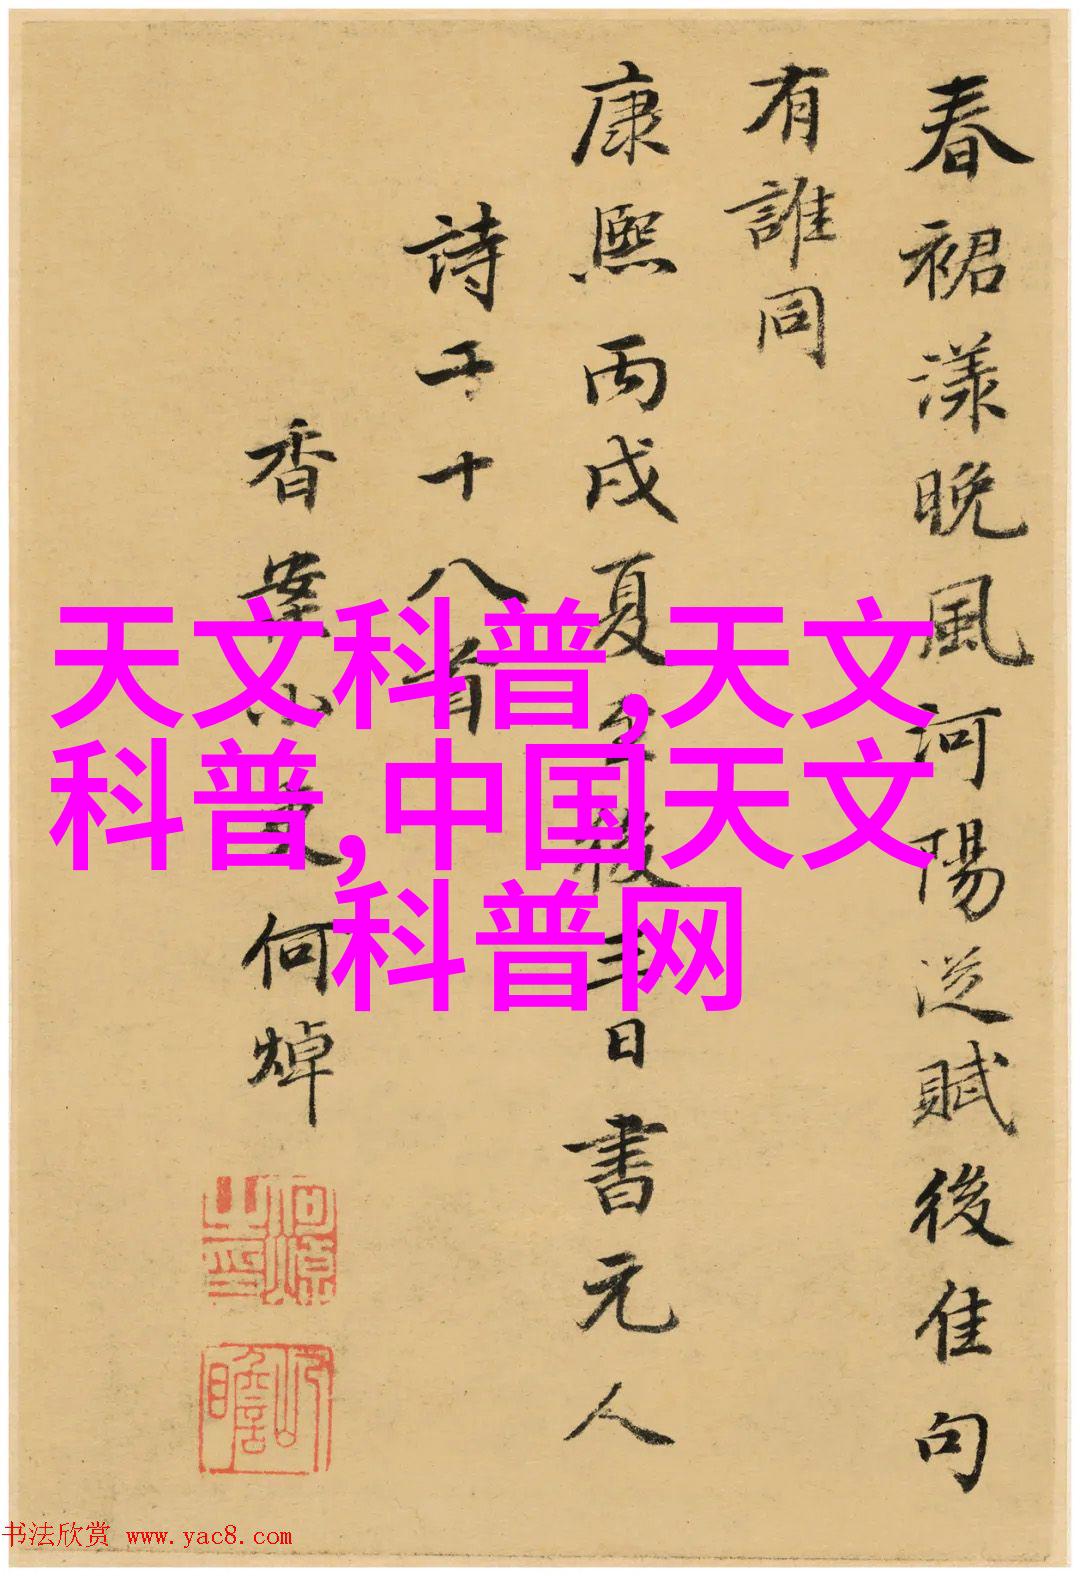 春裙漾晚風河陽從賦後佳句
有誰同
康熙丙戌夏至後三日書元人
詩五十八首
香案小吏何焯
天文科普,天文
科普,中国天文
科普网
书法欣赏 www.yac8.com